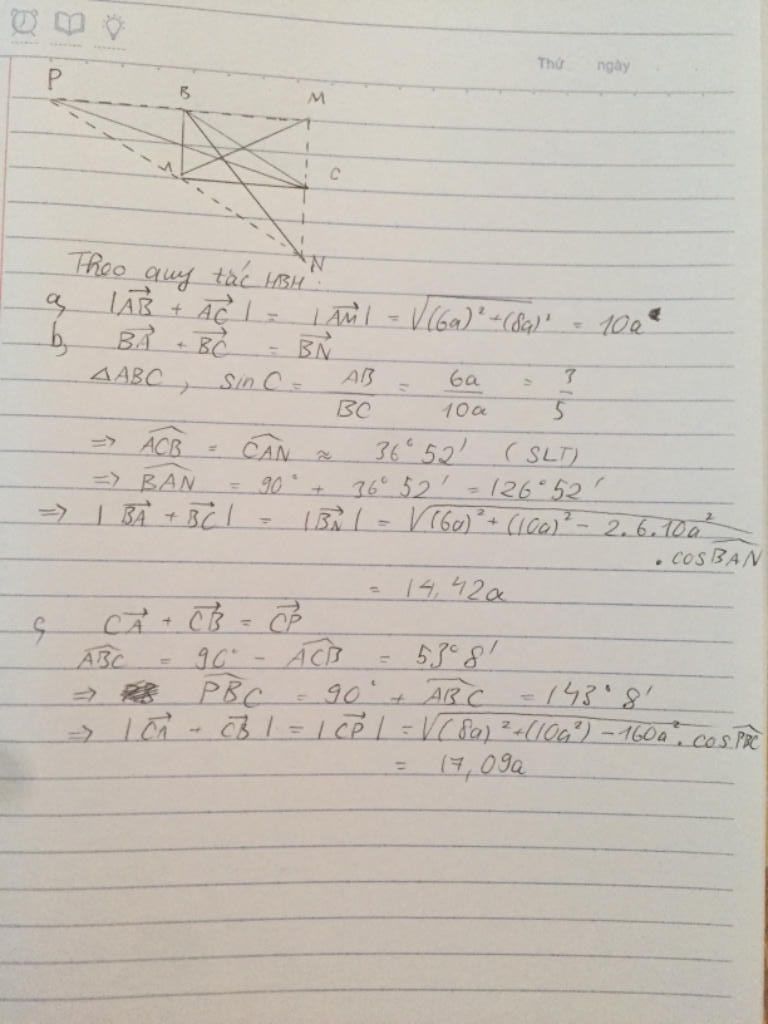 Thứ ngày
P B M
A C
N
Theo quy tắc HBH:
a, |AB⃗ + AC⃗| = |AM⃗| = √((6a)² + (8a)²) = 10a
b, BA⃗ + BC⃗ = BN⃗
△ABC, sin C = AB/BC = 6a/10a = 3/5
=> ACB^ = CAN^ ≈ 36° 52' (SLT)
=> BAN^ = 90° + 36° 52' = 126° 52'
=> |BA⃗ + BC⃗| = |BN⃗| = √((6a)² + (10a)² - 2.6.10a²
. cos BAN^)
= 14,42a
c, CA⃗ + CB⃗ = CP⃗
ABC^ = 90° - ACB^ = 53° 8'
=> PBC^ = 90° + ABC^ = 143° 8'
=> |CA⃗ + CB⃗| = |CP⃗| = √((8a)² + (10a²) - 160a². cos PBC^)
= 17,09a